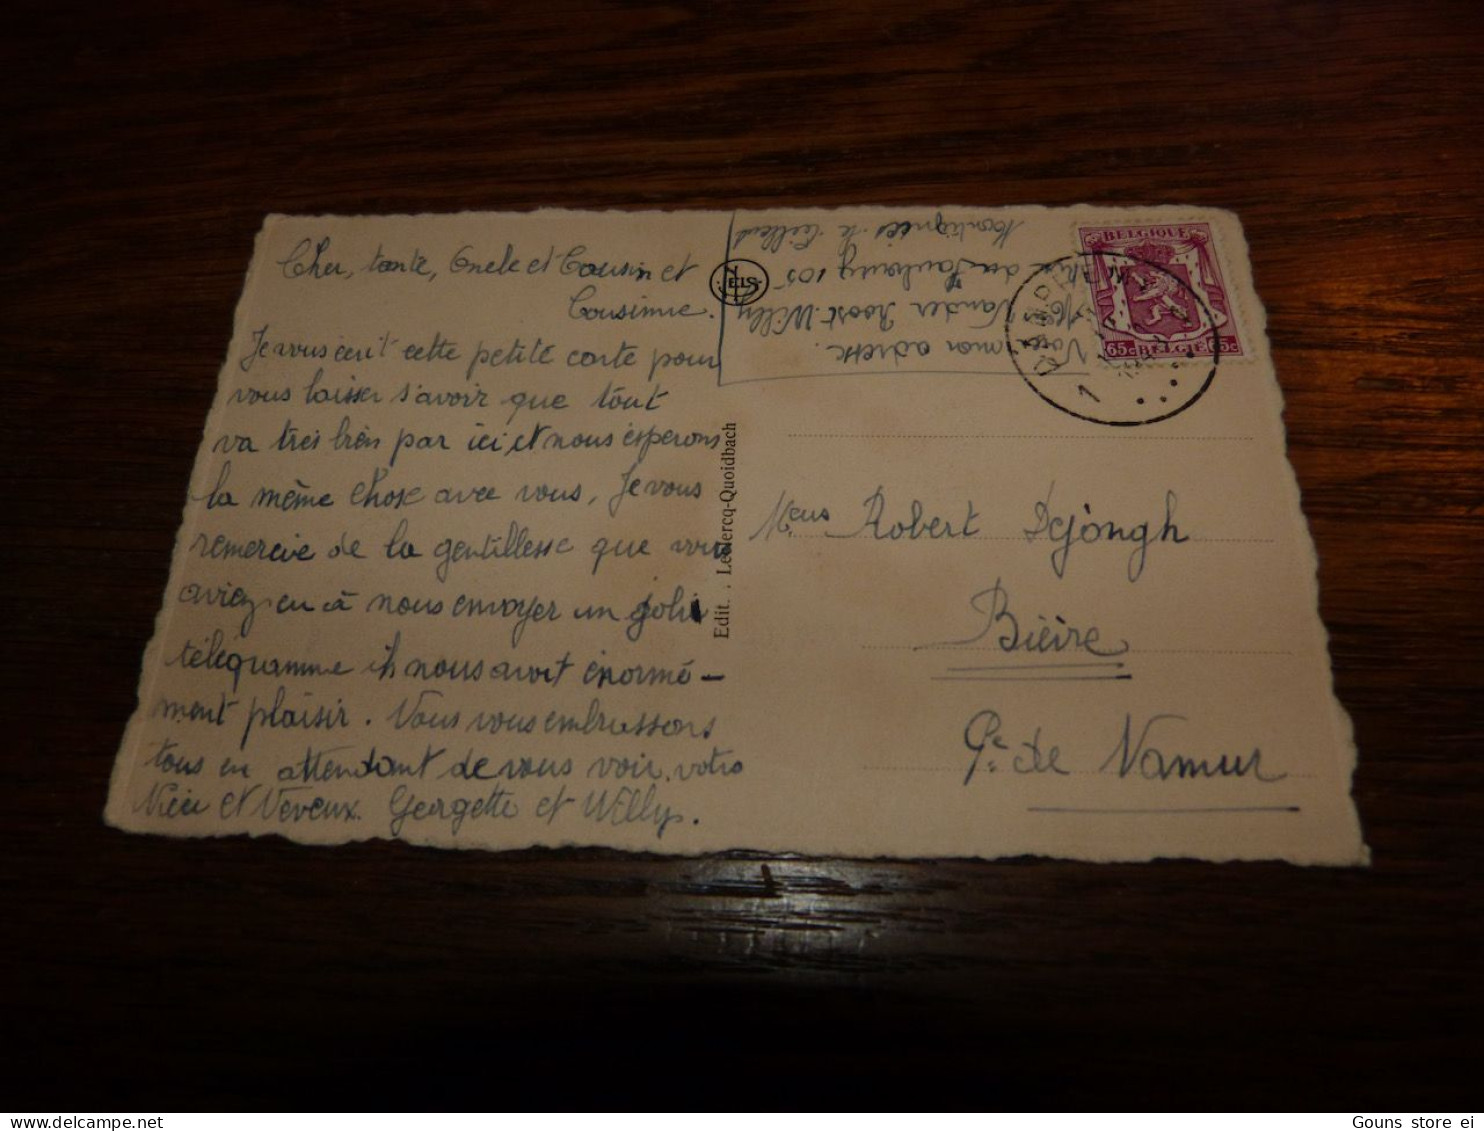 Cher, tante, Oncle et Cousin et
Cousinne.
Je vous écrit cette petite carte pour
vous laisser s'avoir que tout
va très bien par ici et nous ésperons
la même chose avec vous. Je vous
remercie de la gentillesse que vous
aviez eu à nous envoyer un joli
télégramme ih nous avoit énormé-
ment plaisir. Nous vous embrassons
tous en attendant de vous voir, votre
Nièce et Neveux. Georgette et Willy.
NELS
Voici mon adresse.
Vander Roost Willy
Rue du Faubourg 105
Montignies-le-Tilleul
Edit. . Leclercq-Quoidbach
BELGIQUE
65c BELGIE 65c
1
Mr. Robert Dejongh
Bièvre
Pce. de Namur
Gouns store ei